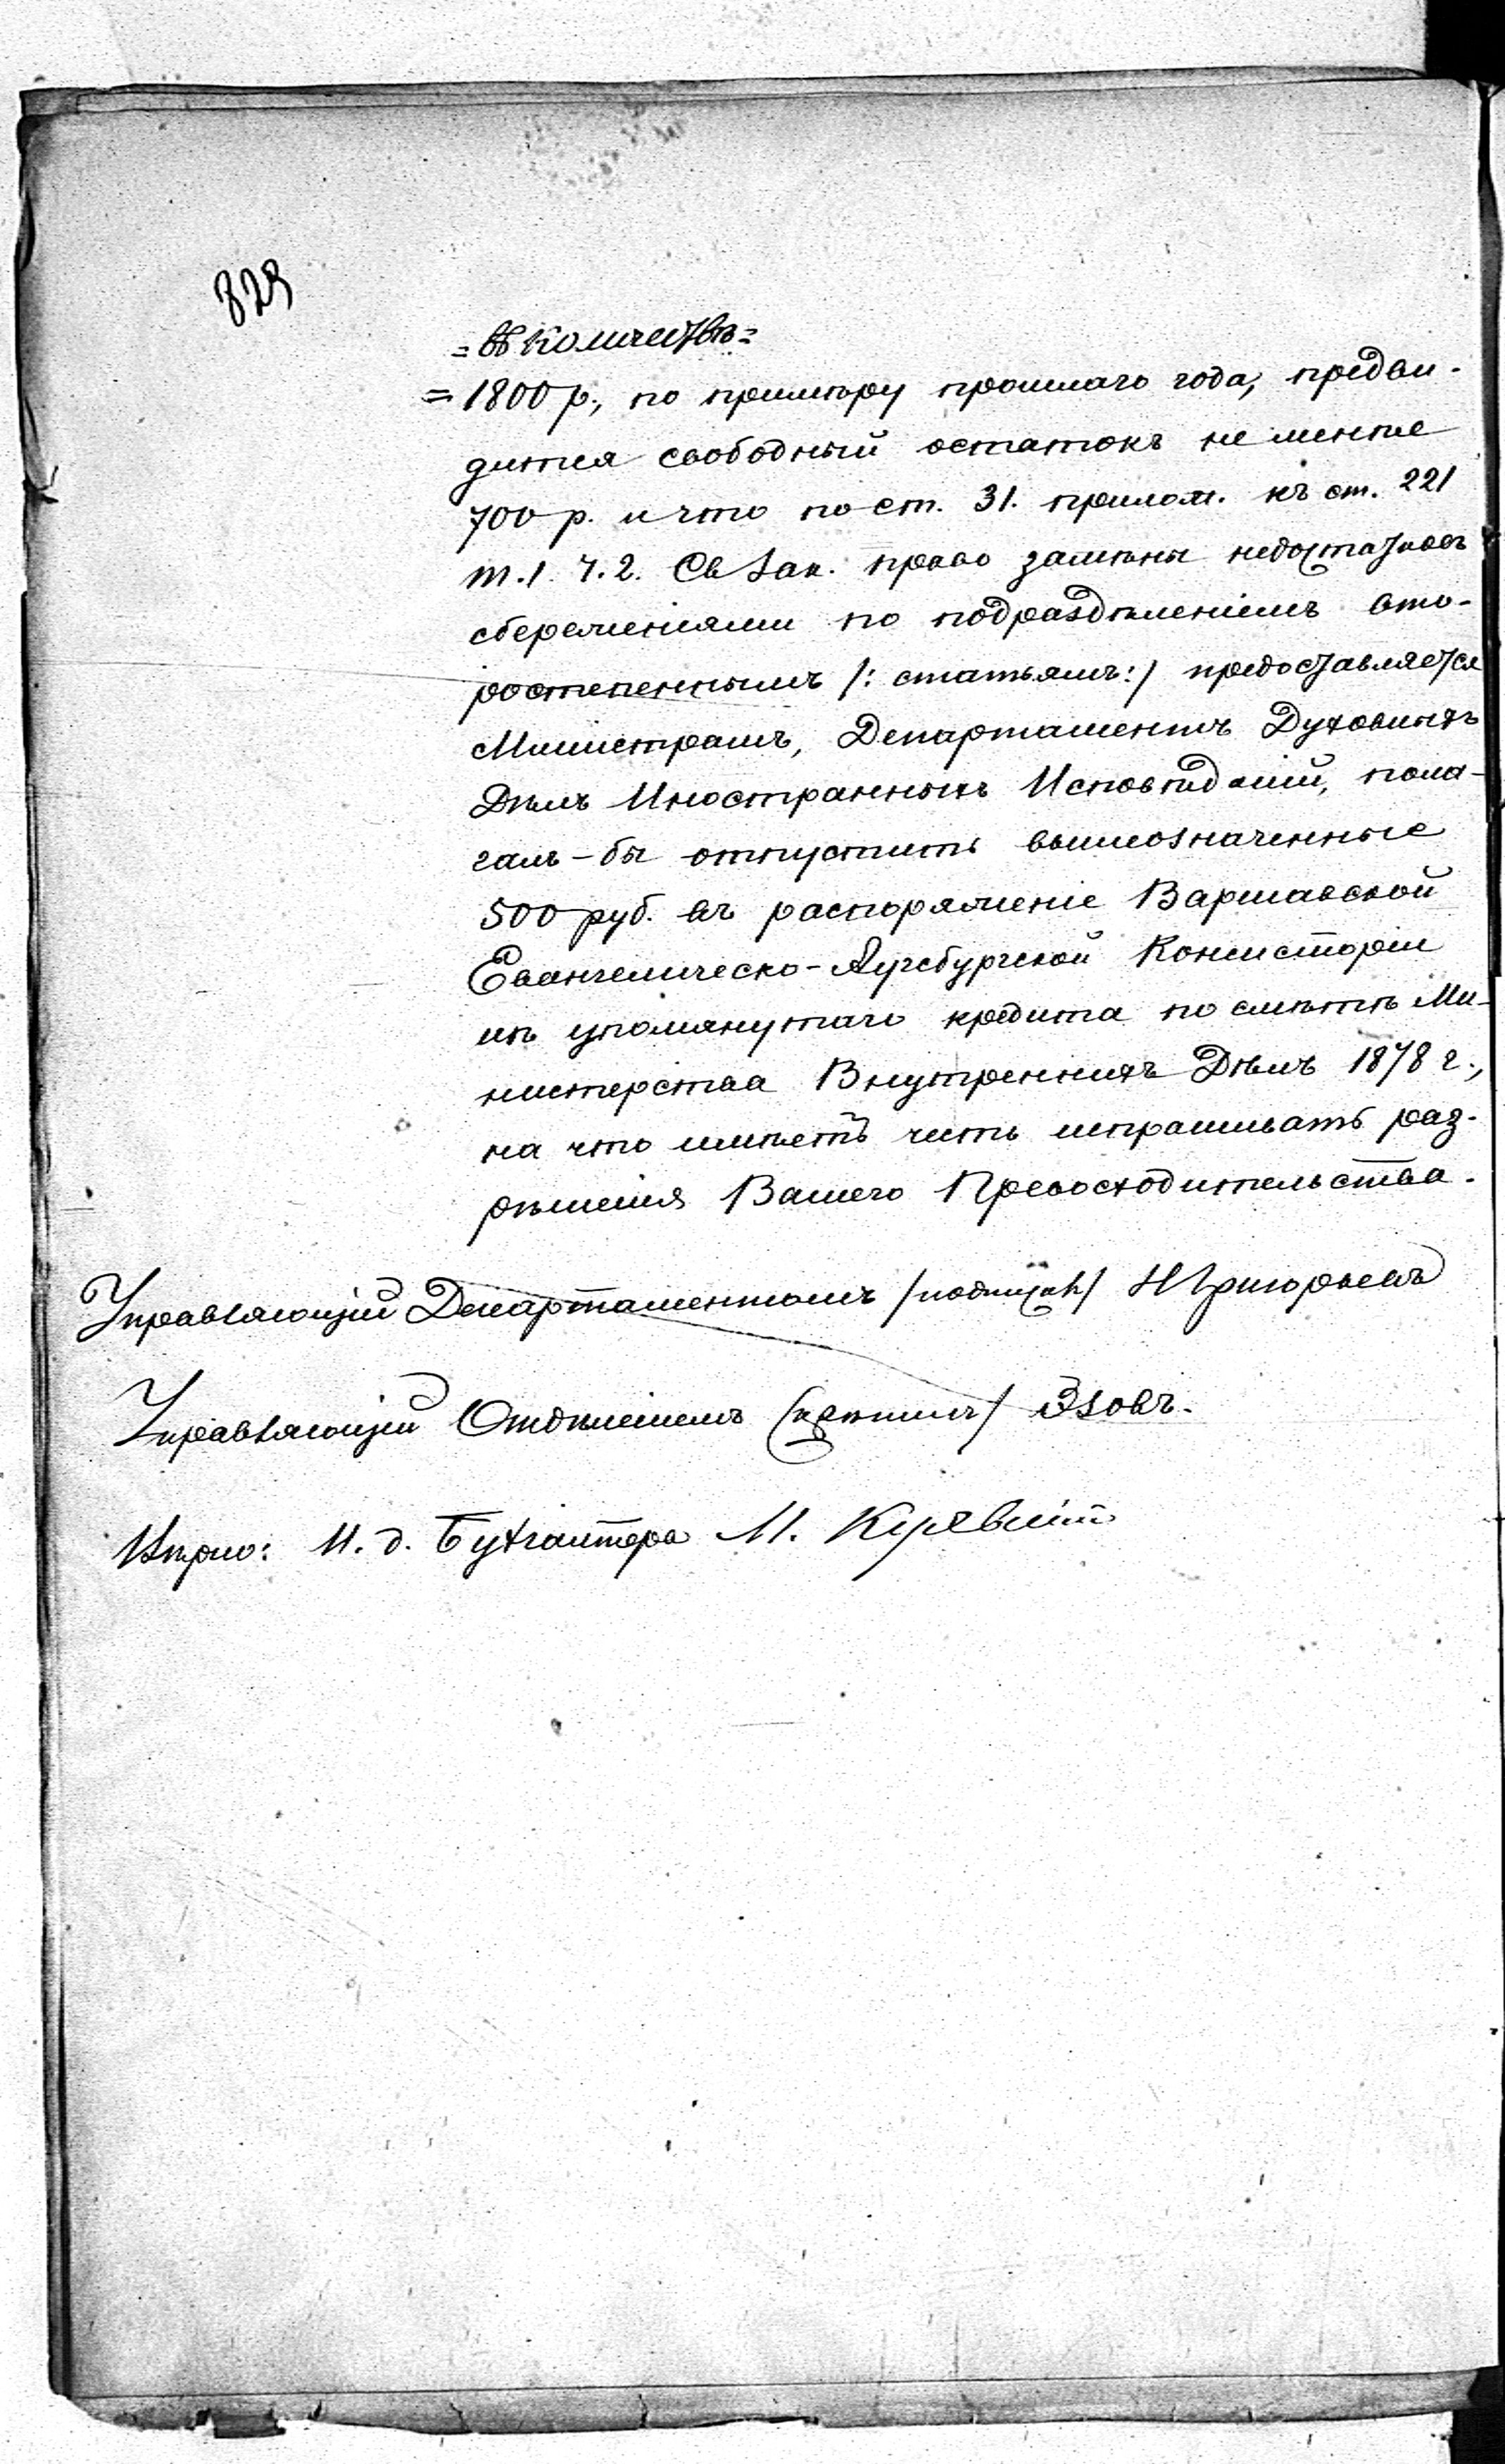 829
= въ количествѣ =
= 1800 р., по примѣру прошлаго года, предви-
дится свободный остатокъ не менѣе
700 р. и что по ст. 31. прилож. къ ст. 221
т. 1. ч. 2. Св Зак. право замѣны недостатковъ
сбереженіями по подраздѣленіемъ вто-
ростепеннымъ /: статьямъ :/ предоставляется
Министрамъ, Департаментъ Духовныхъ
Дѣлъ Иностранныхъ Исповѣданій, пола-
галъ-бы отпустить вышеозначенные
500 руб. въ распоряженіе Варшавской
Евангелическо-Аугсбургской Консисторіи
изъ упомянутаго кредита по смѣтѣ Ми-
нистерства Внутреннихъ Дѣлъ 1878 г.,
на что имѣетъ честь испрашивать раз-
рѣшенія Вашего Превосходительства.
Управляющій Департаментомъ /подписалъ/ Н Григорьевъ
Управляющій Отдѣленіемъ (скрѣпилъ) Эзовъ.
Вѣрно: И. д. Бухгалтера М.